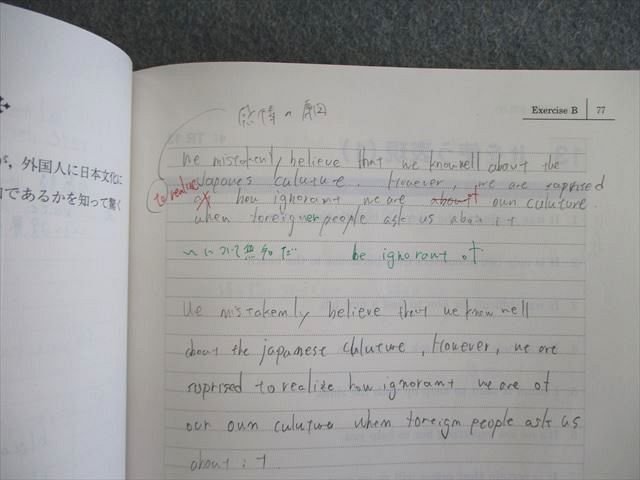 が, 外国人に日本文化に
であるかを知って驚く
Exercise B 77
感情の原因
We mistakenly believe that we know well about the
Japanes culuture. However, we are suprised
to realize at how ignorant we are about of own culuture
when foreigner people ask us about it
〜について無知だ be ignorant of
We mistakenly believe that we know well
about the japanese culuture, However, we are
suprised to realize how ignorant we are of
our own culuture when foreign people ask us
about it.